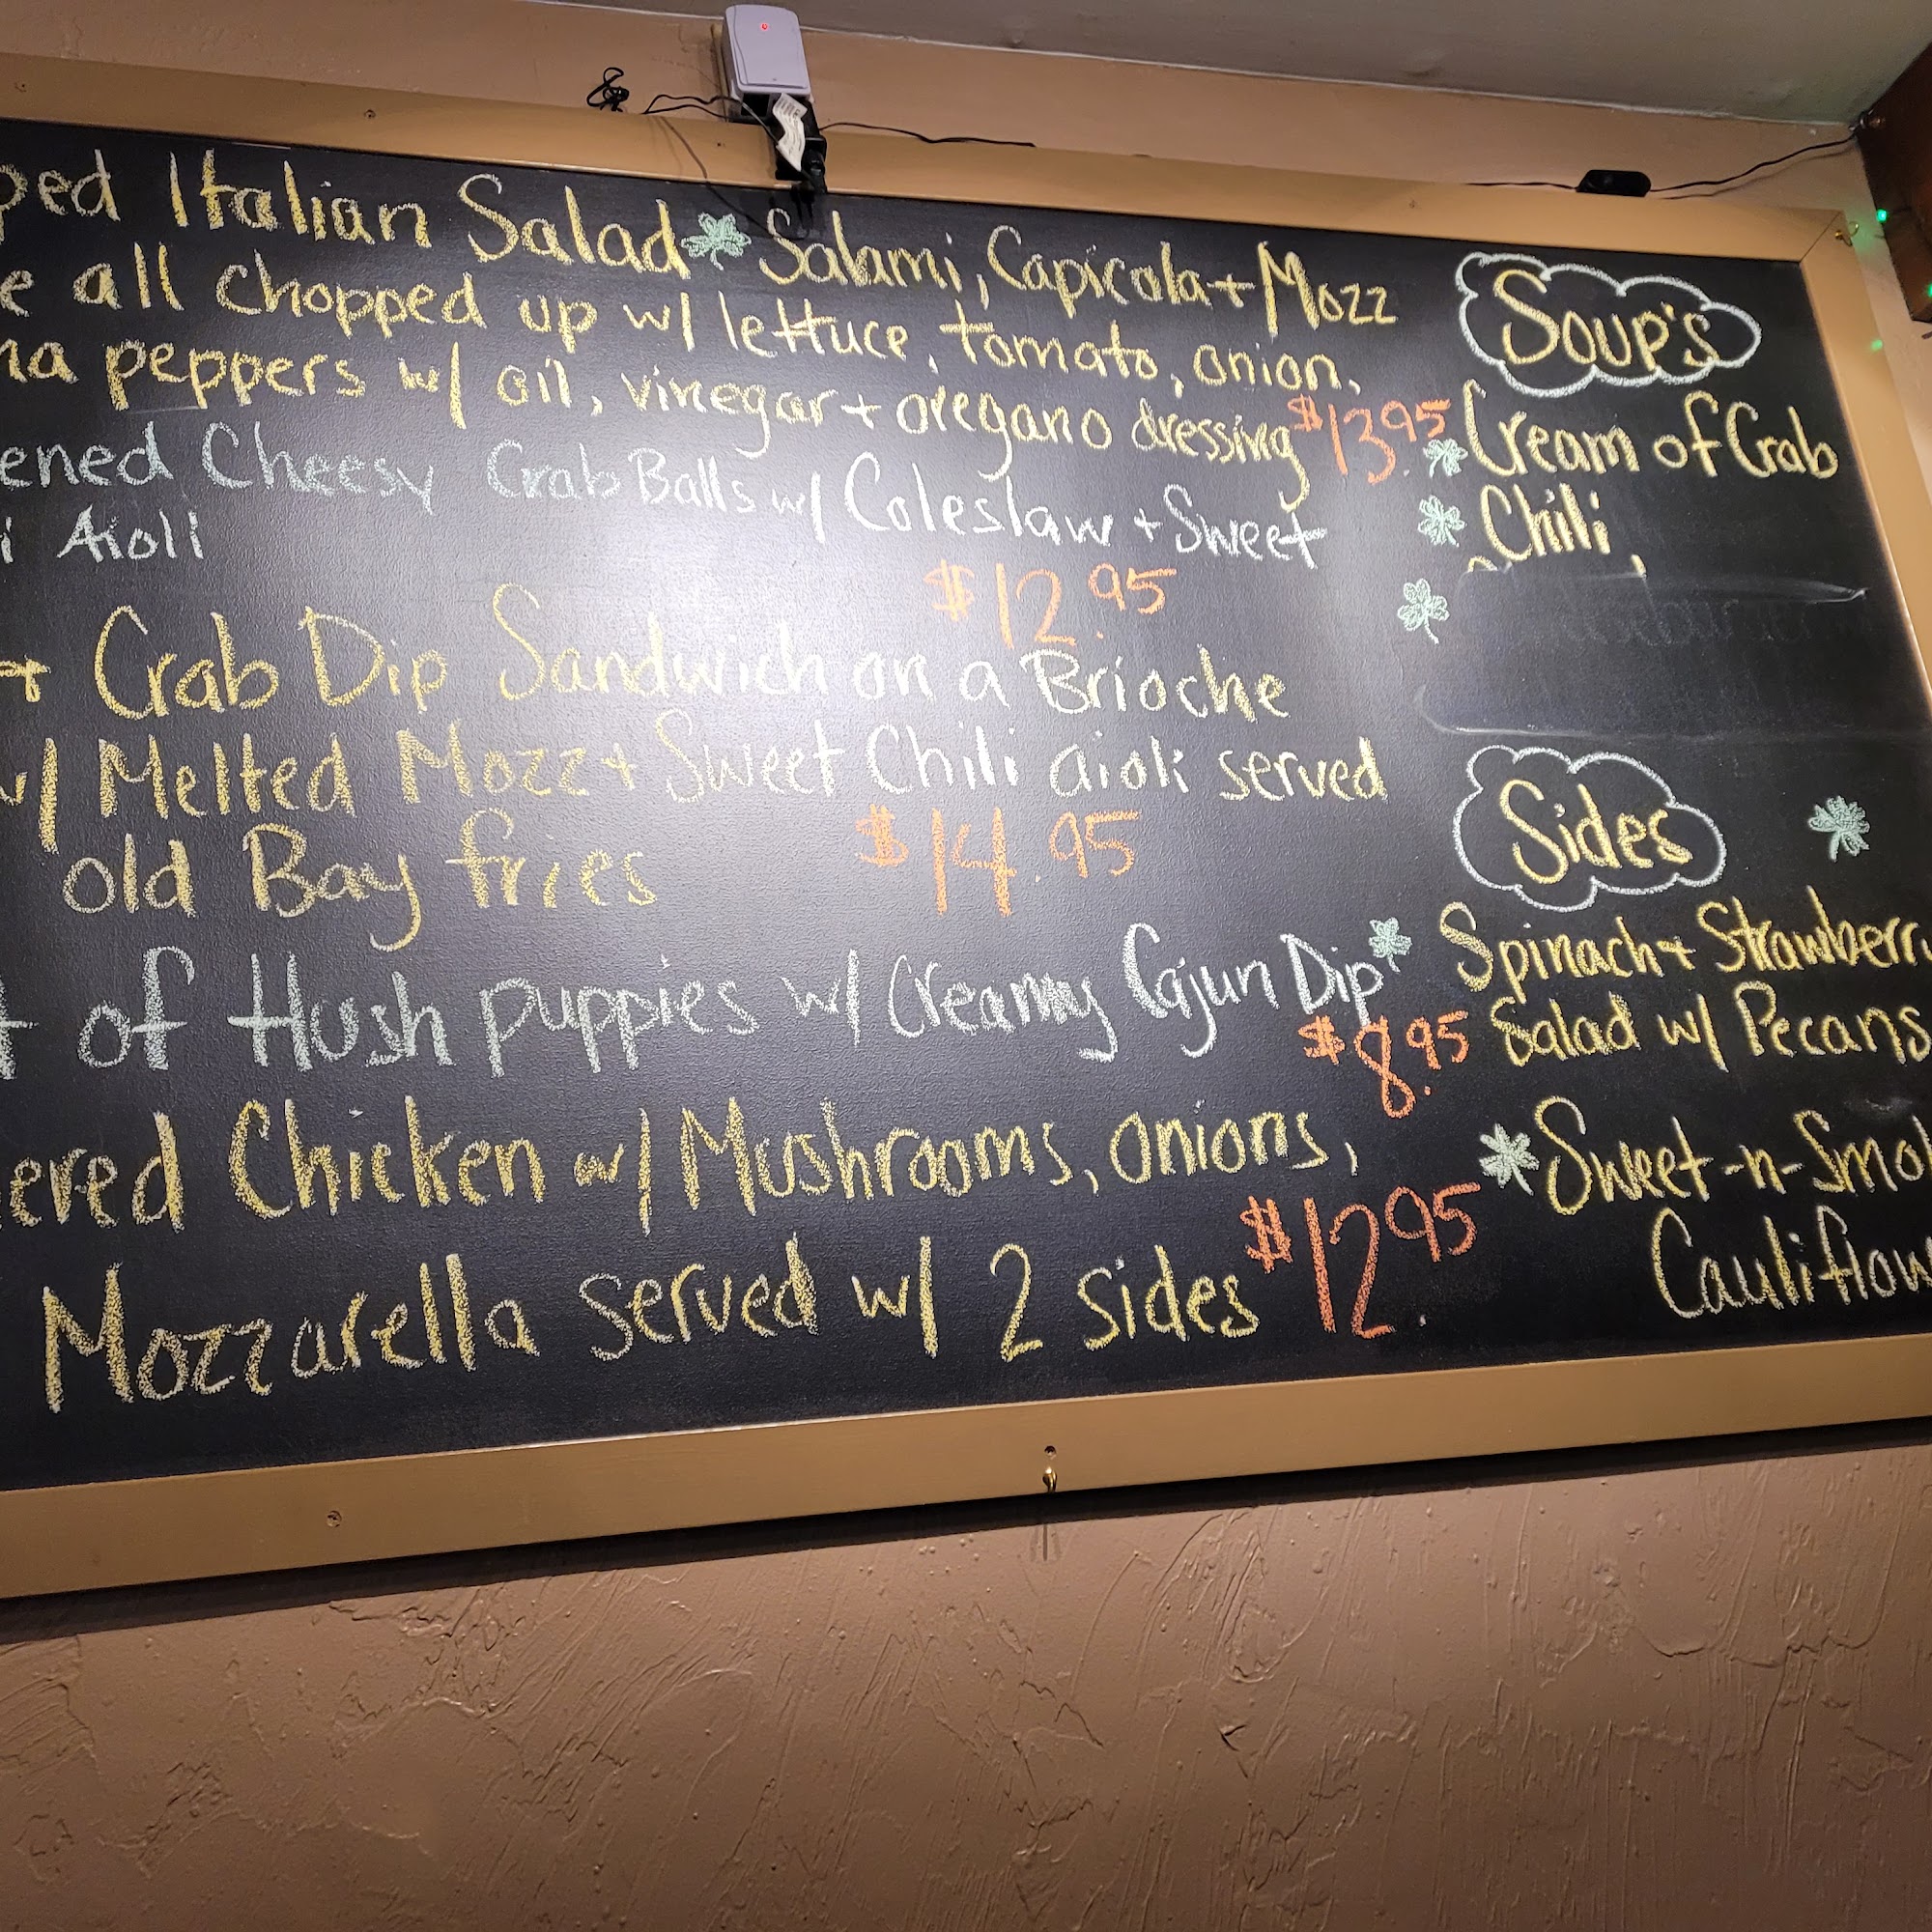 ped Italian Salad Salami, Capicola + Mozz
e all chopped up w/ lettuce, tomato, onion,
na peppers w/ oil, vinegar + oregano dressing $13.95
ened Cheesy Crab Balls w/ Coleslaw + Sweet
i Aioli
$12.95
+ Crab Dip Sandwich on a Brioche
w/ Melted Mozz + Sweet Chili aioli served
old Bay fries $14.95
t of Hush puppies w/ Creamy Cajun Dip
$8.95
ered Chicken w/ Mushrooms, Onions,
Mozzarella served w/ 2 sides $12.95
Soup's
Cream of Crab
Chili
Sides
Spinach + Strawberr
Salad w/ Pecans
Sweet-n-Smok
Cauliflow